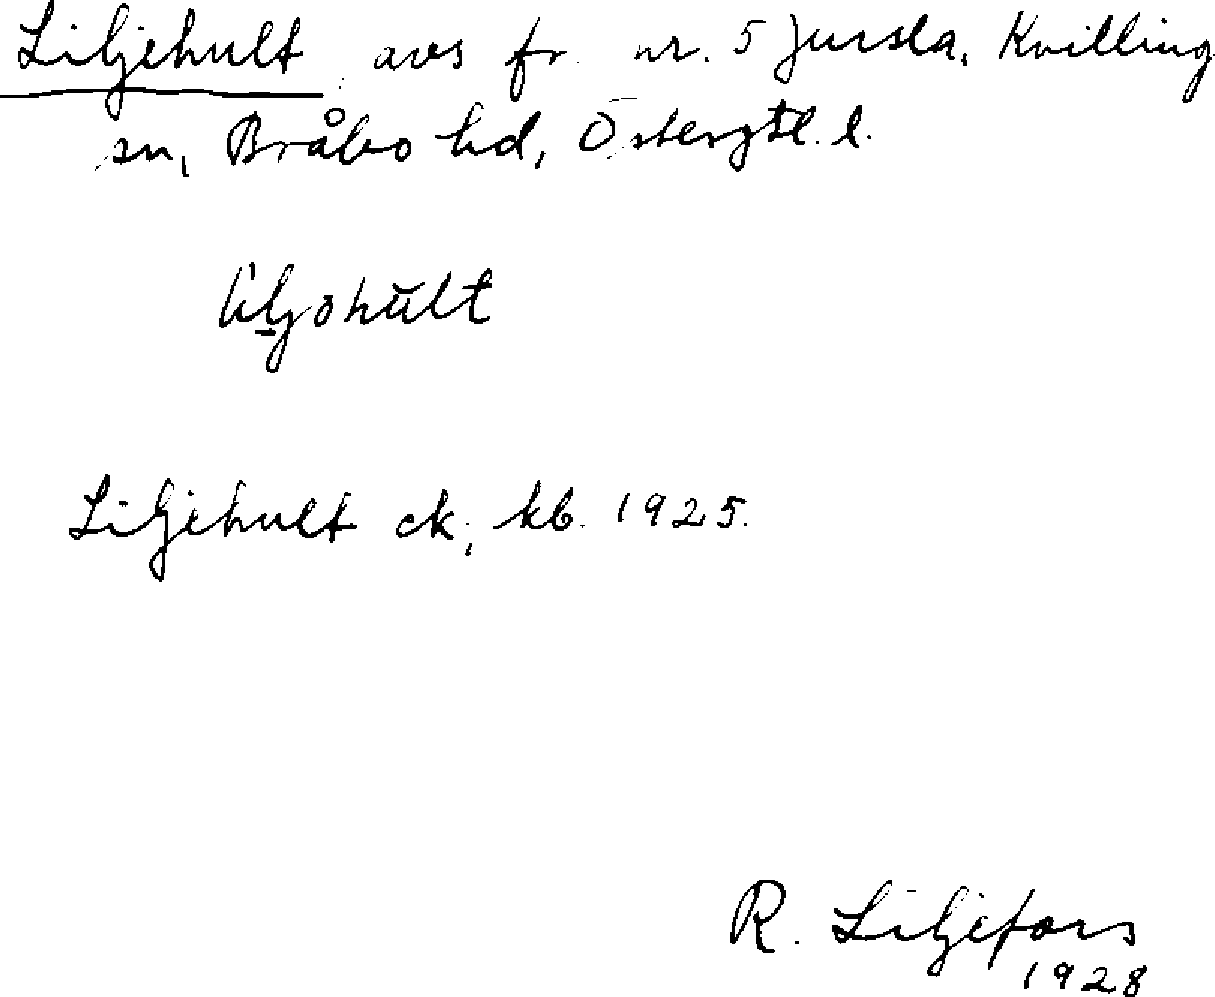 Liljehult avs fr. nr. 5 Jursla, Kvilling
sn, Bråbo hd, Östergtl. l.
liljohult
Liljehult ek; kb. 1925.
R. Liljefors
1928